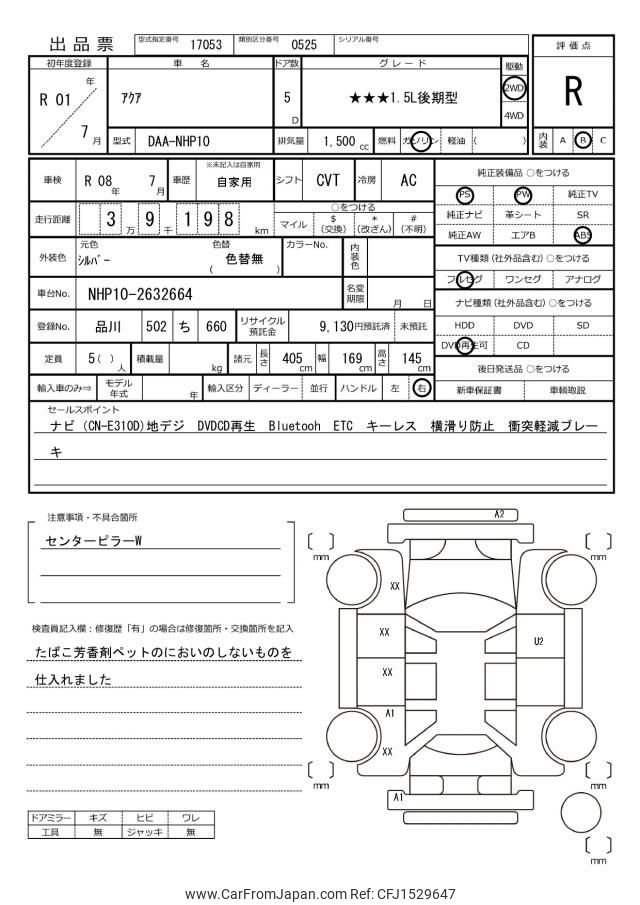 出品票
型式指定番号 17053 類別区分番号 0525 シリアル番号
評価点
R
内装 A B C
初年度登録 車名 ドア数 グレード 駆動
R 01 年 7 月
アクア
5 D
★★★1.5L後期型
2WD
4WD
型式 DAA-NHP10 排気量 1,500 cc 燃料 ガソリン 軽油 ( )
車検 R 08 年 7 月 車歴 ※未記入は自家用 自家用 シフト CVT 冷房 AC
走行距離 3 万 9 千 1 9 8 km
○をつける
マイル $ (交換) * (改ざん) # (不明)
外装色 元色 シルバー 色替 ( 色替無 ) カラーNo. 内装色
車台No. NHP10-2632664 名変期限 月 日
登録No. 品川 502 ち 660 リサイクル預託金 9,130円預託済 未預託
定員 5 ( ) 人 積載量 kg 諸元 長さ 405 cm 幅 169 cm 高さ 145 cm
輸入車のみ⇒ モデル年式 年 輸入区分 ディーラー 並行 ハンドル 左 右
純正装備品 ○をつける
PS PW 純正TV
純正ナビ 革シート SR
純正AW エアB ABS
TV種類 (社外品含む) ○をつける
フルセグ ワンセグ アナログ
ナビ種類 (社外品含む) ○をつける
HDD DVD SD
DVD再生可 CD
後日発送品 ○をつける
新車保証書 車輌取説
セールスポイント
ナビ (CN-E310D)地デジ DVDCD再生 Bluetooh ETC キーレス 横滑り防止 衝突軽減ブレー
キ
注意事項・不具合箇所
センターピラーW
検査員記入欄：修復歴「有」の場合は修復箇所・交換箇所を記入
たばこ芳香剤ペットのにおいのしないものを
仕入れました
ドアミラー キズ ヒビ ワレ
工具 無 ジャッキ 無
A2
mm
mm
XX
XX
U2
XX
A1
XX
mm
mm
A1
mm
www.CarFromJapan.com Ref: CFJ1529647